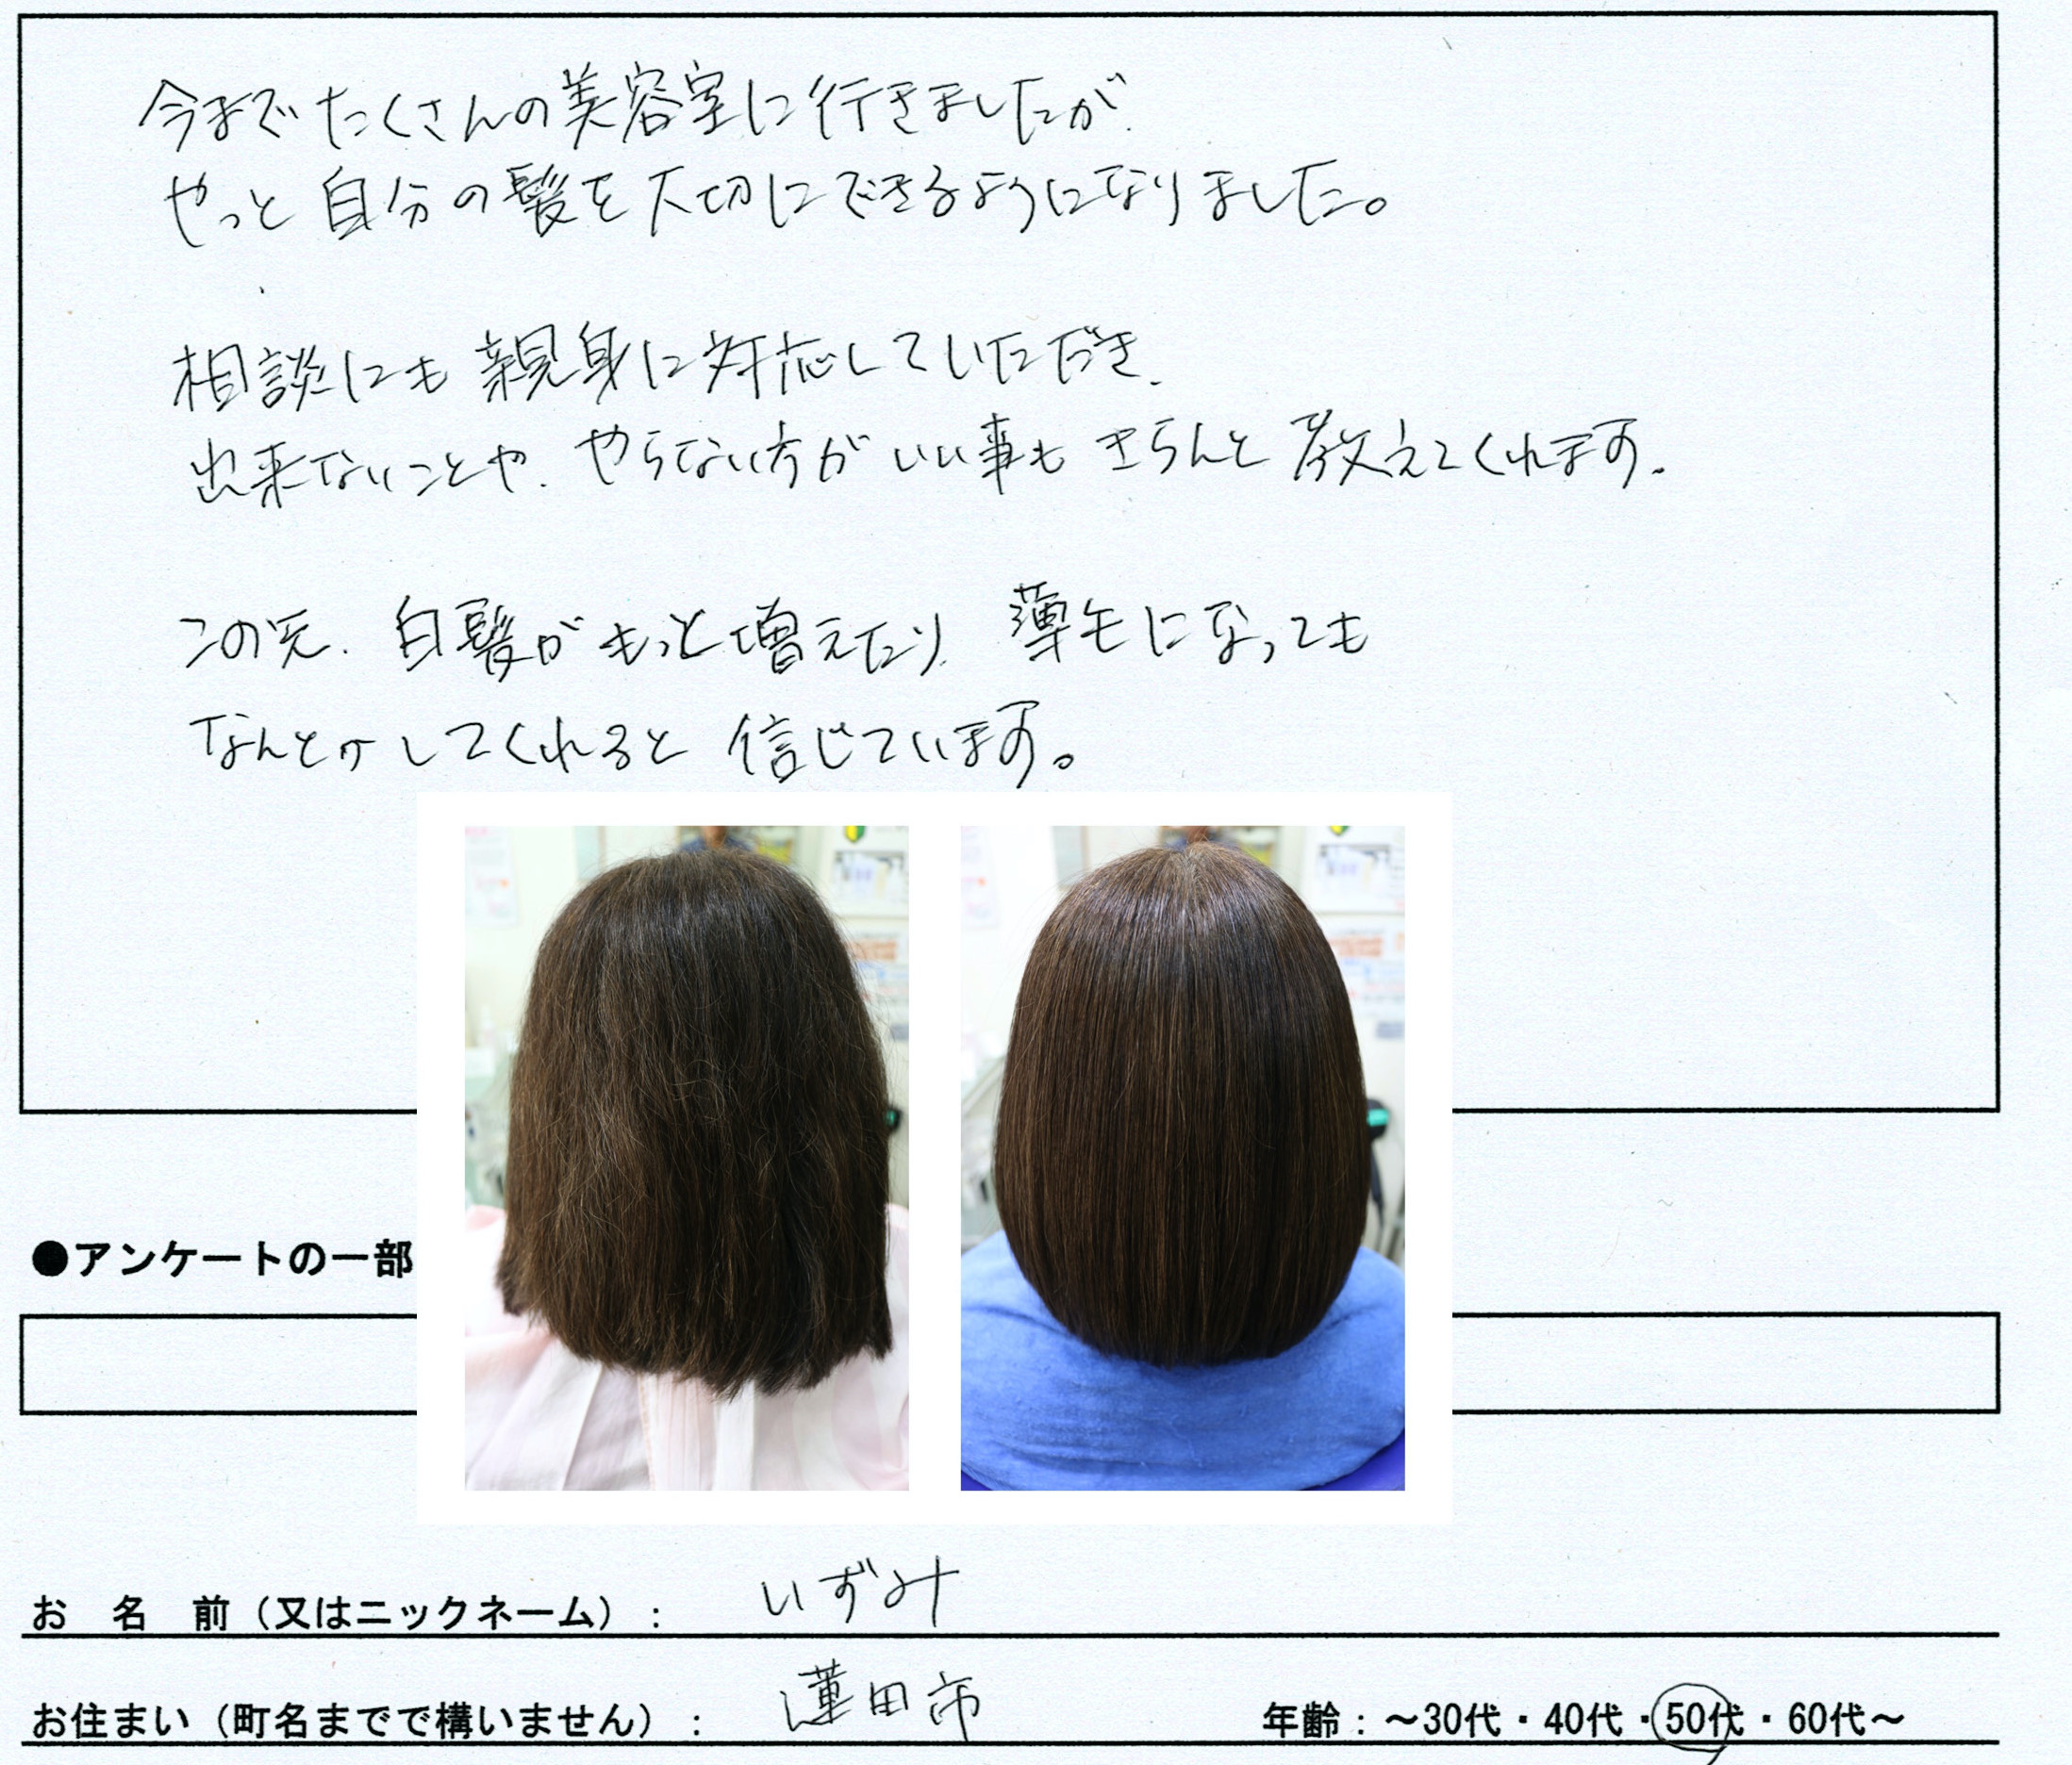 今までたくさんの美容室に行きましたが、
やっと自分の髪を大切にできるようになりました。
相談にも親身に対応していただき、
出来ないことや、やらない方がいい事もきちんと教えてくれます。
この先、白髪がもっと増えたり、薄毛になっても
なんとかしてくれると信じています。
●アンケートの一部
お 名 前（又はニックネーム）： いずみ
お住まい（町名までで構いません）： 蓮田市 年齢：～30代・40代・50代・60代～